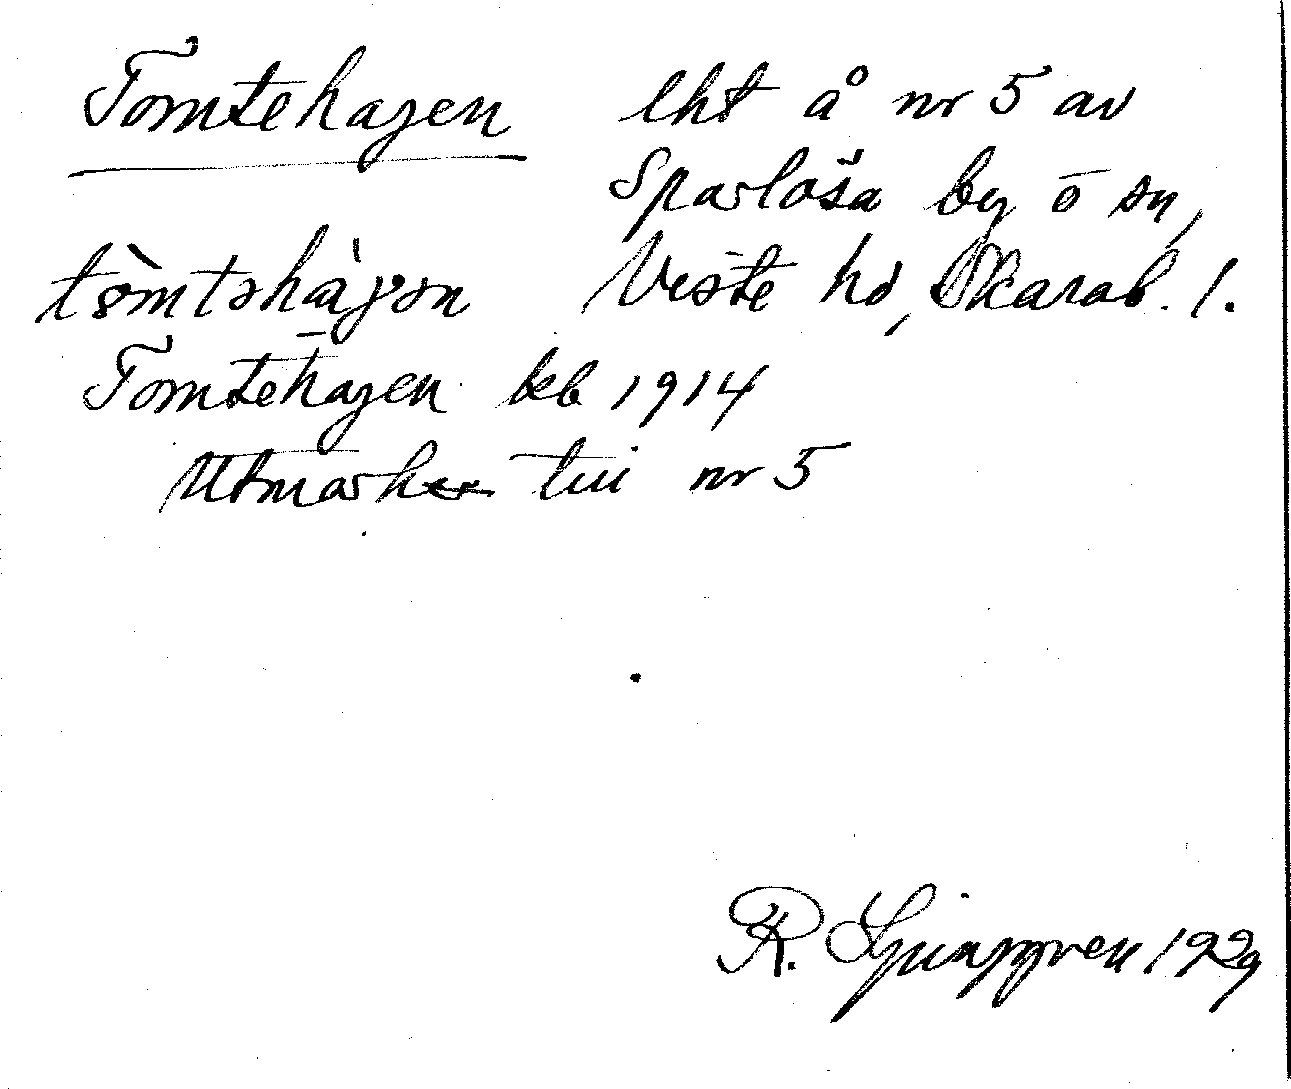 Tomtehagen lht å nr 5 av
Sparlösa by o sn,
tòmtəhàgən Viste hd, Skarab. l.
Tomtehagen kb 1914
Utmark till nr 5
R. 1929